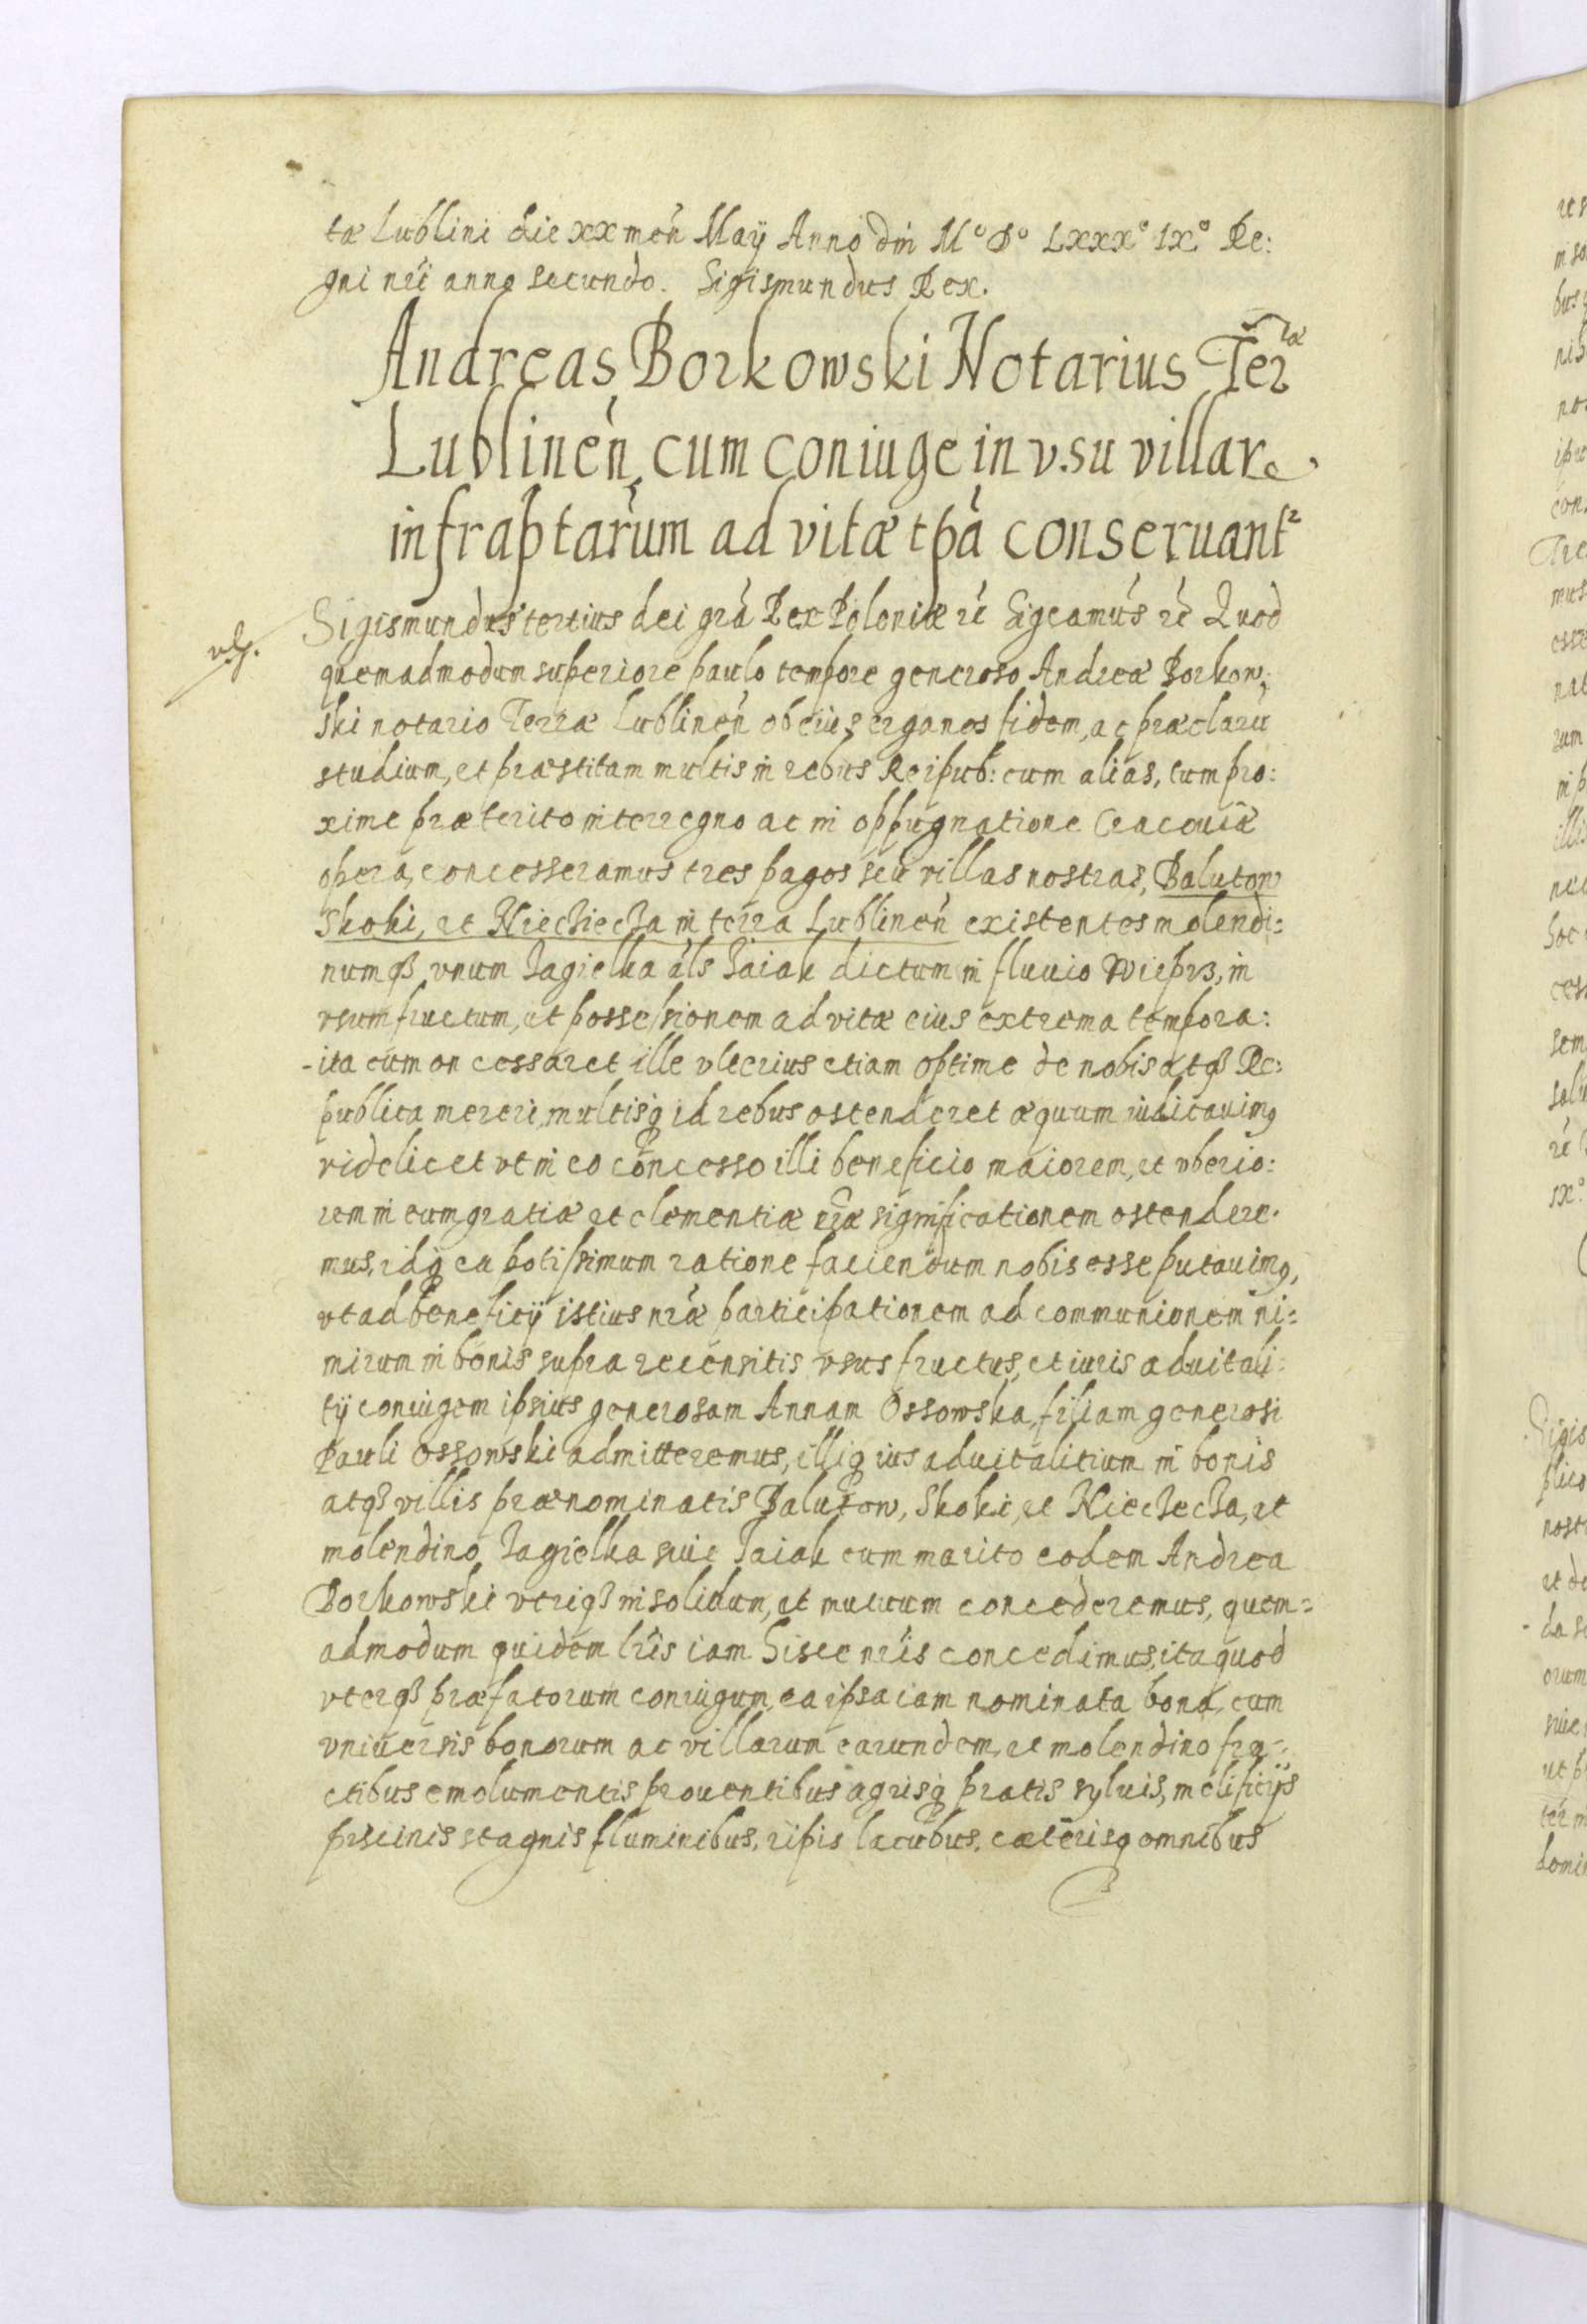 tæ Lublini die xx men̄ Maÿ Anno dm̄ M° D° Lxxx° ix° Re:
gni nr̄i anno secundo. Sigismundus Rex.
Andreas Borkowski Notarius Terræ
Lublineń cum coniuge in vsu villar
infraptarum ad vitæ tpa conseruant
Sigismundus tertius dei gra Rex Poloniæ rc Sigcamus rc Quod
quemadmodum superiore paulo tempore generoso Andreæ Borkow,
ski notario Terræ Lublineń ob eius erga nos fidem, ac præclarū
studium, et præstitam multis in rebus Reipub: cum alias, tum pro:
xime præterito interregno ac in oppugnatione Cracouiæ
opera, concesseramus tres pagos seu villas nostras, Balutow
Skoki, et Niecziecza in terra Lublineń existentes molendi:
numq3 vnum Jagielka als Jaiak dictum in fluuio Wieprz, in
vsumfructum, et possessionem ad vitæ eius extrema tempora:
-ita cum on cessaret ille vlterius etiam optime de nobis atq3 Re:
publica mereri, multisq id rebus ostenderet æquum iudicauimq
videlicet vt in eo concesso illi beneficio maiorem, et vberio:
rem in eum gratiæ et clementiæ nræ significationem ostendere.
mus, idq ea potissimum ratione faciendum nobis esse putauimq,
vt ad beneficÿ istius nræ participationem ad communionem ni:
mirum in bonis supra recensitis vsus fructus, et iuris aduitali:
tÿ coniugem ipsius generosam Annam Ossowska, filiam generosi
Pauli Ossowski admitteremus, illiq ius aduitalitium in bonis
atq3 villis prænominatis Balutow, Skoki, et Nieczecza, et
molendino Jagielka siue Jaiak cum marito eodem Andrea
Borkowski vtriq3 insolidum, et mutuum concederemus, quem:
admodum quidem lris iam hisce nris concedimus, ita quod
vterq3 præfatorum coniugum, ea ipsa iam nominata bona, cum
vniuersis bonorum ac villarum earundem, et molendino fru:
ctibus emolumentis prouentibus agrisq pratis syluis, melificÿs
piscinis stagnis fluminibus, ripis lacubus, cæterisq omnibus